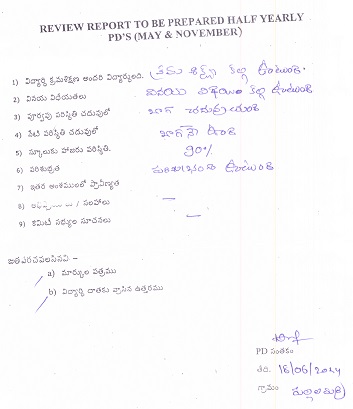 REVIEW REPORT TO BE PREPARED HALF YEARLY
PD'S (MAY & NOVEMBER)
1) విద్యార్థి క్రమశిక్షణ అందరి విద్యార్థులది. క్రమ శిక్షణ కల్గి ఉంటుంది.
2) వినయ విధేయతలు వినయ విధేయత కల్గి ఉంటుంది
3) పూర్వపు పరిస్థితి చదువులో బాగా చదువుతుంది
4) నేటి పరిస్థితి చదువులో బాగానే ఉంది
5) స్కూలుకు హాజరు పరిస్థితి. 90%
6) పరిశుభ్రత పరిశుభ్రంగా ఉంటుంది
7) ఇతర అంశములలో ప్రావీణ్యత
8) / సలహాలు —
9) కమిటీ సభ్యుల సూచనలు —
జతపరచవలసినవి :-
a) మార్కుల పత్రము
b) విద్యార్థి దాతకు వ్రాసిన ఉత్తరము
PD సంతకం
తేది. 18/06/2024
గ్రామం